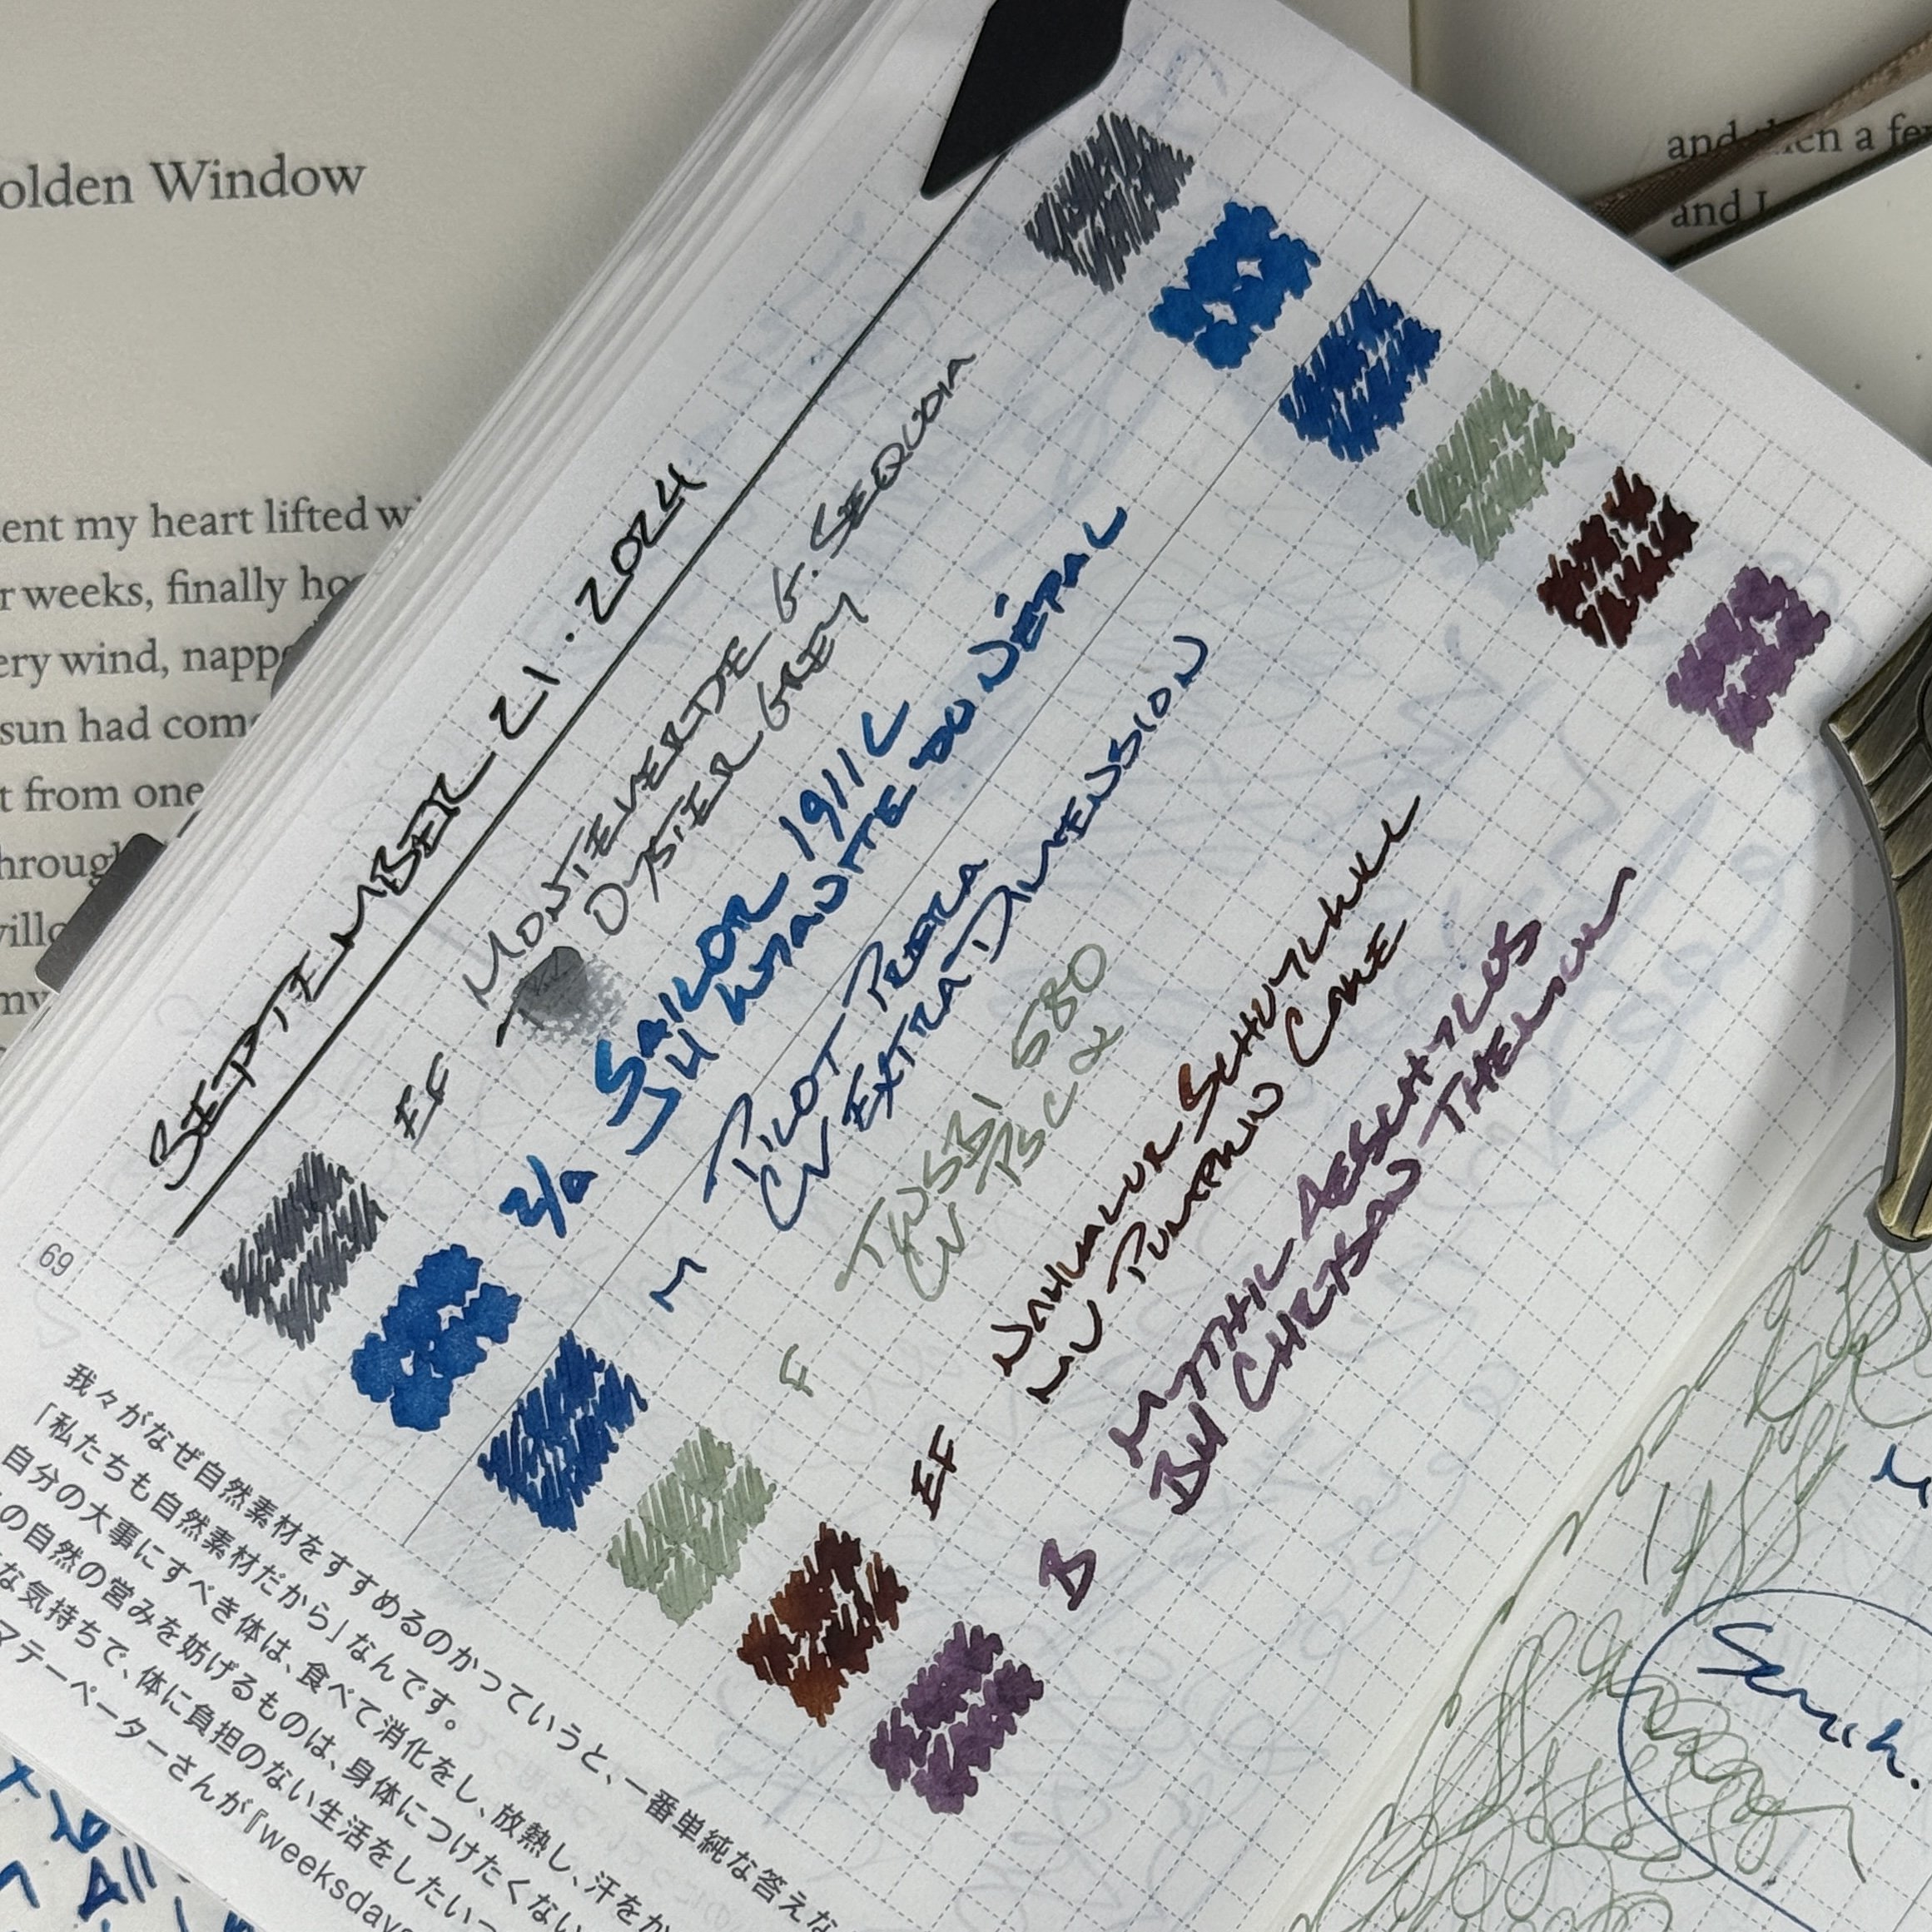 olden Window
ent my heart lifted w
r weeks, finally ho
ery wind, napp
sun had com
t from one
hroug
and then a fe
and I
SEPTEMBER 21. 2024
EF MONTEVERDE G. SEQUOIA
OYSTER GREY
Z/O SAILOR 1911L
JH KYANITE DU NÉPAL
M PILOT PRERA
CV EXTRA DIMENSION
F TWSBI 580
CV PSC
EF NAHVALUR SCHUYLKILL
MV PUMPKIN CAKE
B MYTHIC AESCHYLUS
BH CHRTSAN THEMUM
69
我々がなぜ自然素材をすすめるのかっていうと、一番単純な答えな
「私たちも自然素材だから」なんです。
自分の大事にすべき体は、食べて消化をし、放熱し、汗をか
の自然の営みを妨げるものは、身体につけたくない
な気持ちで、体に負担のない生活をしたいっ
マテーペーターさんが『weeksdays